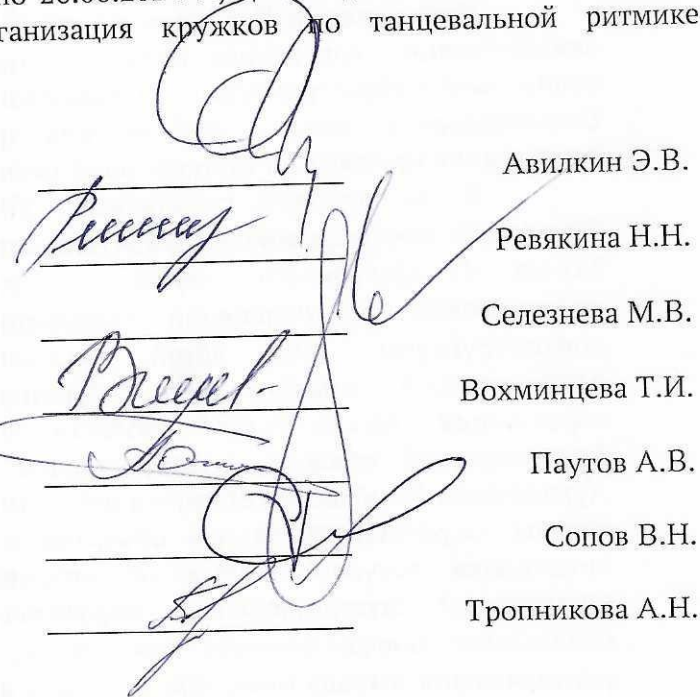 по
ганизация кружков по танцевальной ритмике
Авилкин Э.В.
Ревякина Н.Н.
Селезнева М.В.
Вохминцева Т.И.
Паутов А.В.
Сопов В.Н.
Тропникова А.Н.